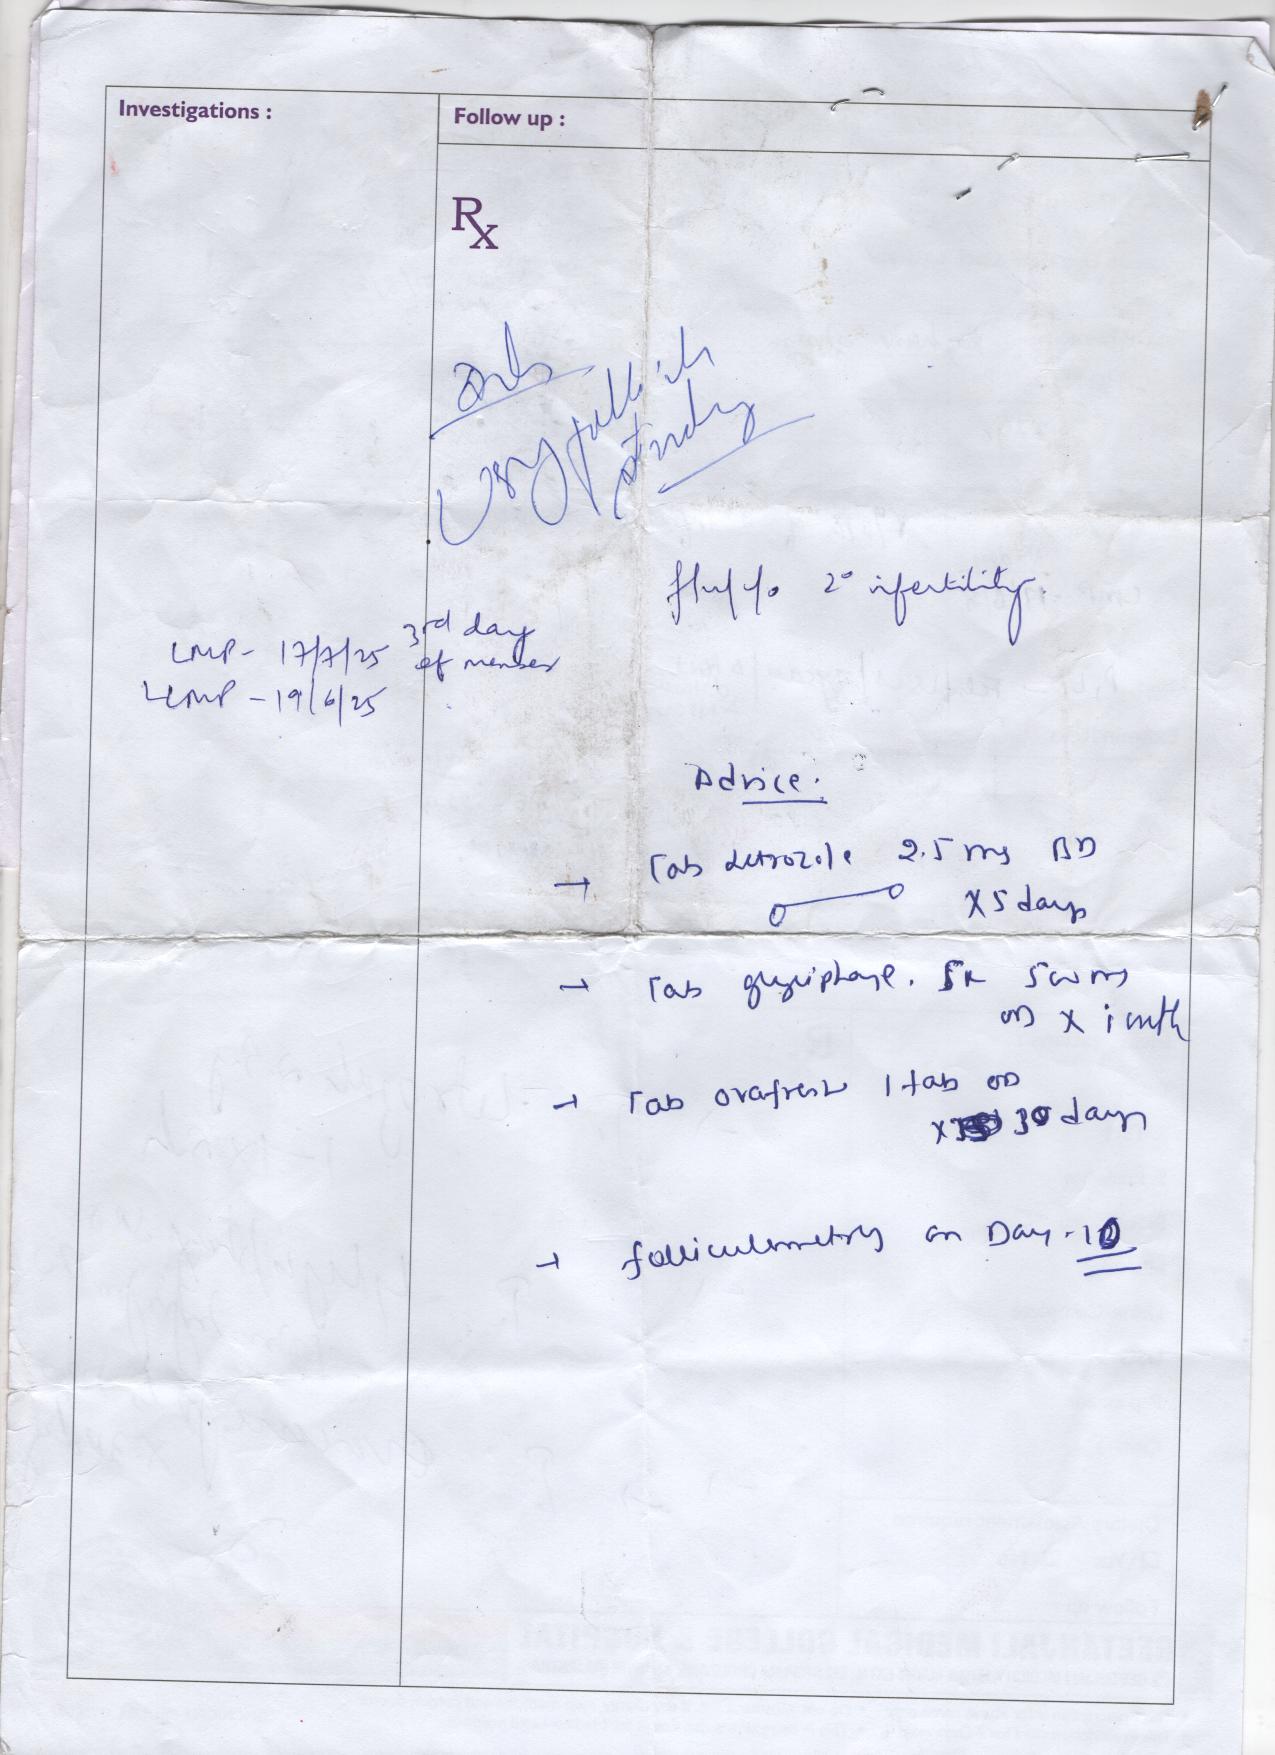 Investigations :
Follow up :
Rx
Adv
USG follicular
study
f/u/c/o 2° infertility.
LMP- 17/7/25 3rd day
of menses
LLMP - 19/6/25
Advice.
→ Tab Letrozole 2.5 mg BD
x 5 days
→ Tab glyciphage. SR 500 mg
OD x 1 mth
→ Tab ovafresh 1 tab OD
x 30 days
→ folliculometry on Day-10
GEETANJALI MEDICAL COLLEGE & HOSPITAL